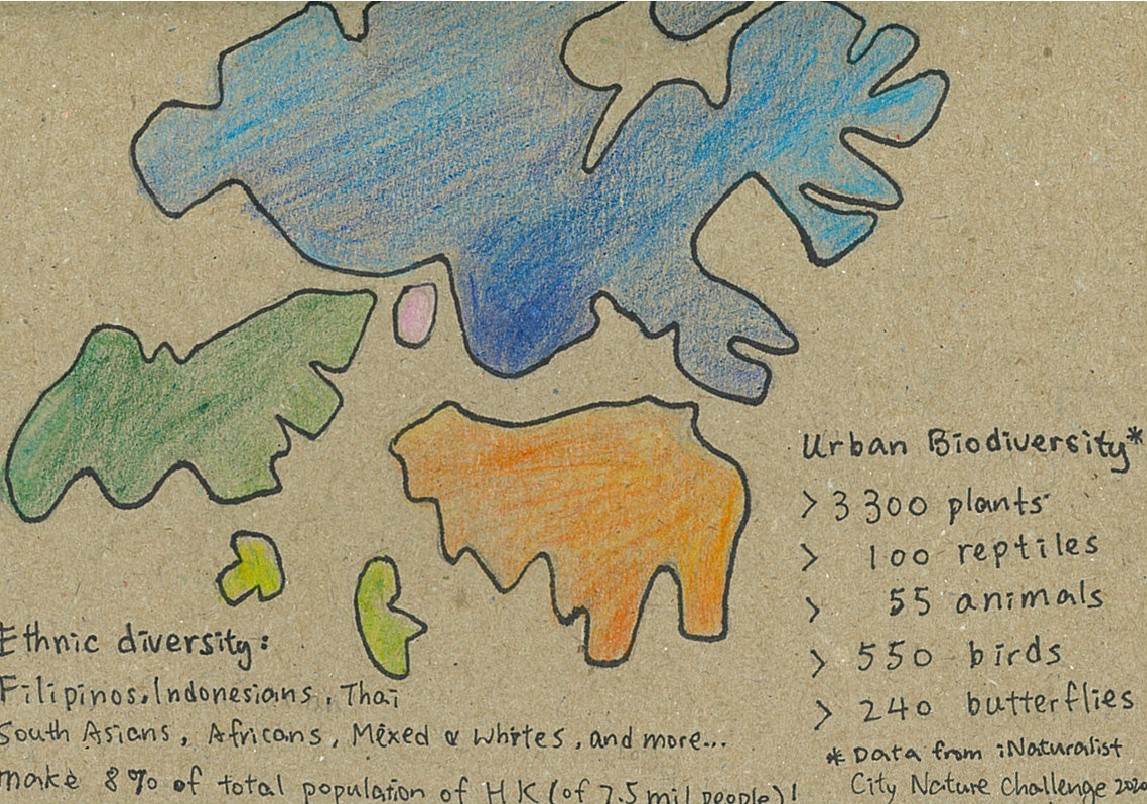 Urban Biodiversity*
> 3300 plants
> 100 reptiles
> 55 animals
> 550 birds
> 240 butterflies
* Data from iNaturalist
City Nature Challenge
Ethnic diversity:
Filipinos, Indonesians, Thai
South Asians, Africans, Mixed & Whites, and more...
make 8% of total population of HK (of 7.5 mil people)!